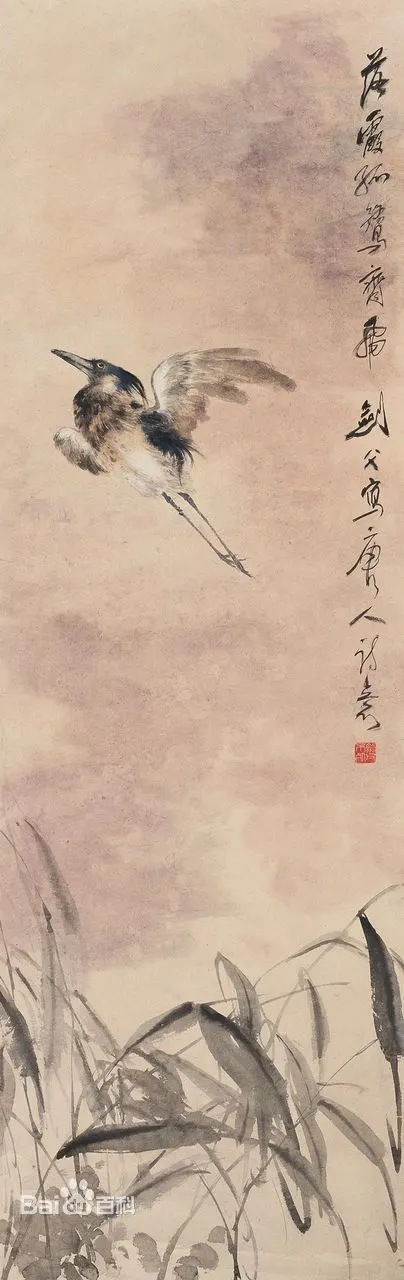 落霞孤鶩齊飛 劍父寫唐人詩意
Bai百科